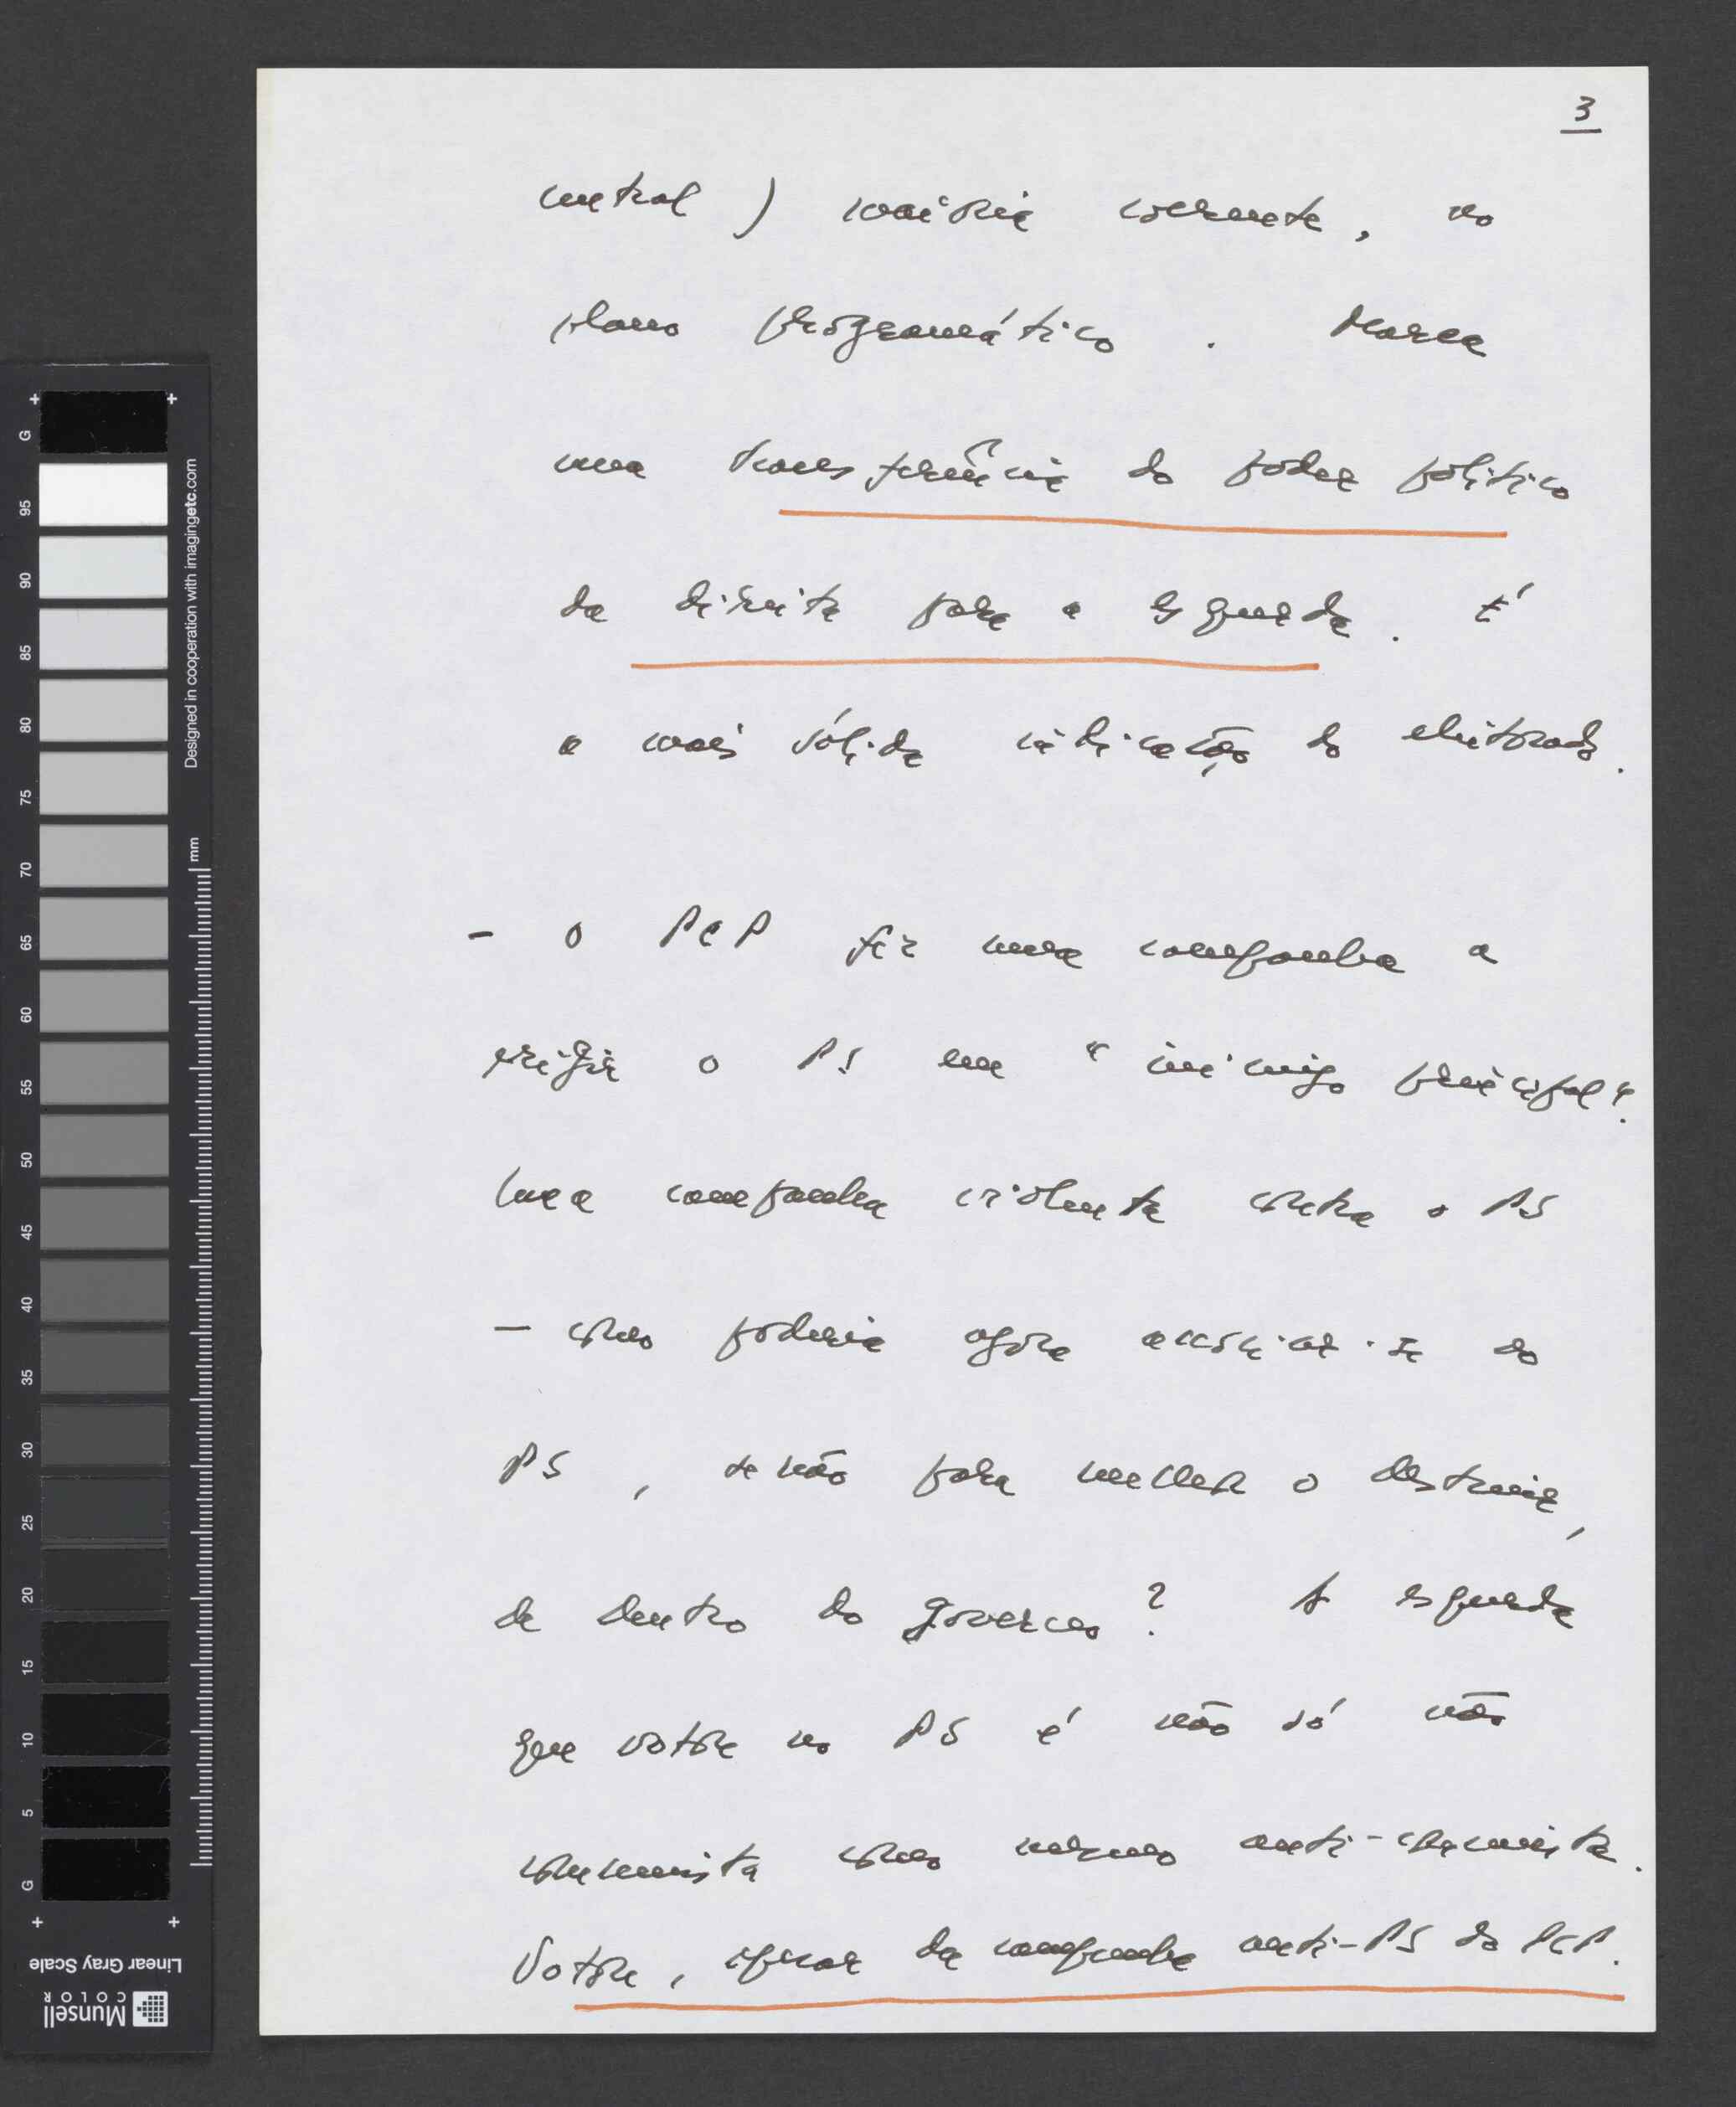 3
central) maioria coerente, no
plano programático. Marca
uma transferência do poder político
da direita para a esquerda. É
a mais sólida indicação do eleitorado.
- O PCP fez uma campanha a
erigir o PS em "inimigo principal".
Uma campanha violenta contra o PS
- como poderia agora associar-se ao
PS, senão para melhor o destruir,
de dentro do governo? A esquerda
que votou no PS é não só não
comunista como mesmo anti-comunista.
Votou, apesar da campanha anti-PS do PCP.
Designed in cooperation with imagingetc.com
mm
G 95 90 85 80 75 70 65 60 55 50 45 40 35 30 25 20 15 10 5 G
Linear Gray Scale
Munsell
COLOR